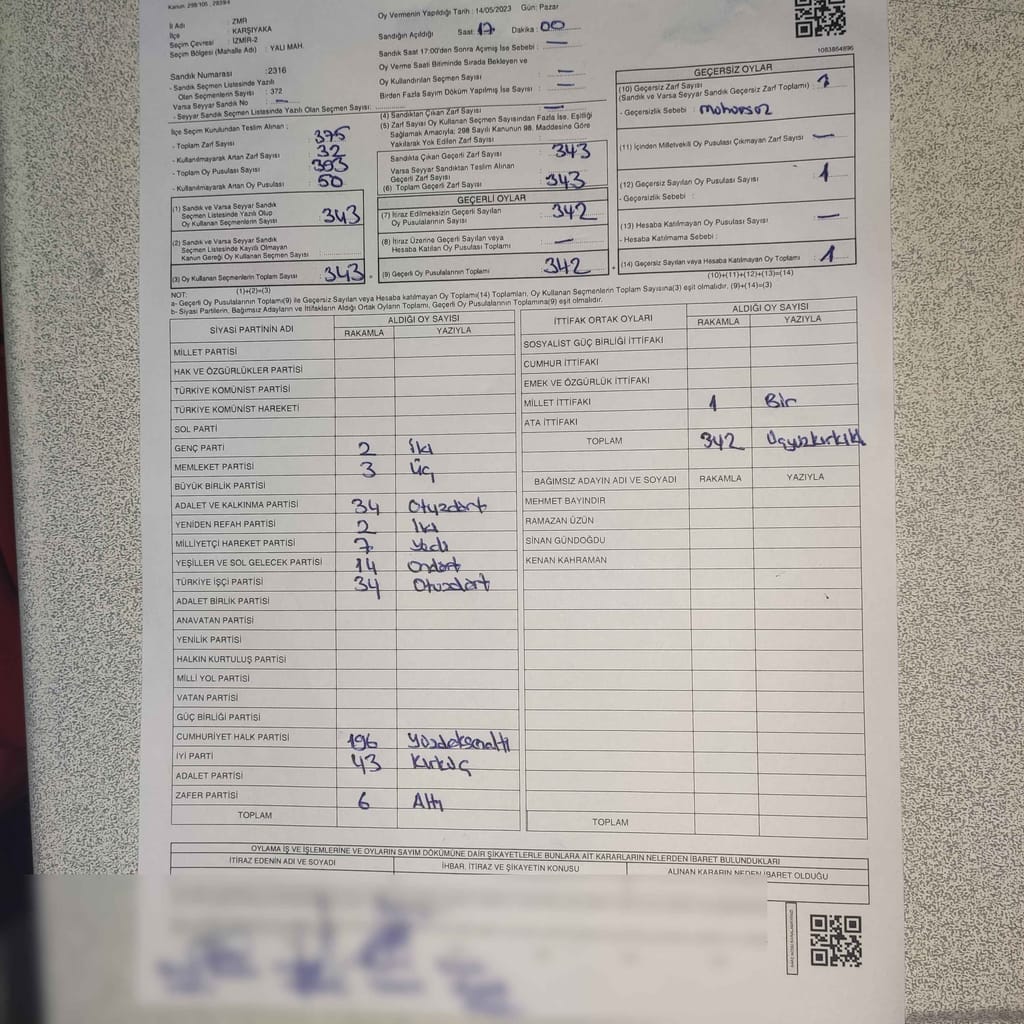 Kanun: 298/105
İl Adı : ZMR
İlçe : KARŞIYAKA
Seçim Çevresi : İZMİR-2
Seçim Bölgesi (Mahalle Adı) : YALI MAH.
Sandık Numarası :2316
- Sandık Seçmen Listesinde Yazılı
Olan Seçmenlerin Sayısı : 372
Varsa Seyyar Sandık No : —
- Seyyar Sandık Seçmen Listesinde Yazılı Olan Seçmen Sayısı:
Oy Vermenin Yapıldığı Tarih : 14/05/2023 Gün: Pazar
Sandığın Açıldığı Saat: 17 Dakika : 00
Sandık Saat 17:00'den Sonra Açımış İse Sebebi : —
Oy Verme Saati Bitiminde Sırada Bekleyen ve
Oy Kullandırılan Seçmen Sayısı : —
Birden Fazla Sayım Döküm Yapılmış İse Sayısı : —
1083864896
İlçe Seçim Kurulundan Teslim Alınan :
- Toplam Zarf Sayısı : 375
- Kullanılmayarak Artan Zarf Sayısı : 32
- Toplam Oy Pusulası Sayısı : 393
- Kullanılmayarak Artan Oy Pusulası : 50
(1) Sandık ve Varsa Seyyar Sandık
Seçmen Listesinde Yazılı Olup
Oy Kullanan Seçmenlerin Sayısı : 343
(2) Sandık ve Varsa Seyyar Sandık
Seçmen Listesinde Kayıtlı Olmayan
Kanun Gereği Oy Kullanan Seçmen Sayısı :
(3) Oy Kullanan Seçmenlerin Toplam Sayısı : 343
(1)+(2)=(3)
(4) Sandıktan Çıkan Zarf Sayısı : —
(5) Zarf Sayısı Oy Kullanan Seçmen Sayısından Fazla İse, Eşitliği
Sağlamak Amacıyla; 298 Sayılı Kanunun 98. Maddesine Göre
Yakılarak Yok Edilen Zarf Sayısı :
Sandıkta Çıkan Geçerli Zarf Sayısı : 343
Varsa Seyyar Sandıktan Teslim Alınan
Geçerli Zarf Sayısı :
(6) Toplam Geçerli Zarf Sayısı : 343
GEÇERLİ OYLAR
(7) İtiraz Edilmeksizin Geçerli Sayılan
Oy Pusulalarının Sayısı : 342
(8) İtiraz Üzerine Geçerli Sayılan veya
Hesaba Katılan Oy Pusulası Toplamı : —
(9) Geçerli Oy Pusulalarının Toplamı : 342
GEÇERSİZ OYLAR
(10) Geçersiz Zarf Sayısı
(Sandık ve Varsa Seyyar Sandık Geçersiz Zarf Toplamı) : 1
- Geçersizlik Sebebi :
(11) İçinden Milletvekili Oy Pusulası Çıkmayan Zarf Sayısı : —
(12) Geçersiz Sayılan Oy Pusulası Sayısı : 1
- Geçersizlik Sebebi :
(13) Hesaba Katılmayan Oy Pusulası Sayısı : —
- Hesaba Katılmama Sebebi :
(14) Geçersiz Sayılan veya Hesaba Katılmayan Oy Toplamı : 1
(10)+(11)+(12)+(13)=(14)
NOT:
a- Geçerli Oy Pusulalarının Toplamı(9) ile Geçersiz Sayılan veya Hesaba katılmayan Oy Toplamı(14) Toplamları, Oy Kullanan Seçmenlerin Toplam Sayısına(3) eşit olmalıdır. (9)+(14)=(3)
b- Siyasi Partilerin, Bağımsız Adayların ve İttifakların Aldığı Ortak Oyların Toplamı, Geçerli Oy Pusulalarının Toplamına(9) eşit olmalıdır.
SİYASİ PARTİNİN ADI ALDIĞI OY SAYISI
RAKAMLA YAZIYLA
MİLLET PARTİSİ
HAK VE ÖZGÜRLÜKLER PARTİSİ
TÜRKİYE KOMÜNİST PARTİSİ
TÜRKİYE KOMÜNİST HAREKETİ
SOL PARTİ
GENÇ PARTİ 2 İki
MEMLEKET PARTİSİ 3 Üç
BÜYÜK BİRLİK PARTİSİ
ADALET VE KALKINMA PARTİSİ 34 Otuzdört
YENİDEN REFAH PARTİSİ 2 İki
MİLLİYETÇİ HAREKET PARTİSİ 7 Yedi
YEŞİLLER VE SOL GELECEK PARTİSİ 14 Ondört
TÜRKİYE İŞÇİ PARTİSİ 34 Otuzdört
ADALET BİRLİK PARTİSİ
ANAVATAN PARTİSİ
YENİLİK PARTİSİ
HALKIN KURTULUŞ PARTİSİ
MİLLİ YOL PARTİSİ
VATAN PARTİSİ
GÜÇ BİRLİĞİ PARTİSİ
CUMHURİYET HALK PARTİSİ 196
İYİ PARTİ 43 Kırküç
ADALET PARTİSİ
ZAFER PARTİSİ 6 Altı
TOPLAM
İTTİFAK ORTAK OYLARI ALDIĞI OY SAYISI
RAKAMLA YAZIYLA
SOSYALİST GÜÇ BİRLİĞİ İTTİFAKI
CUMHUR İTTİFAKI
EMEK VE ÖZGÜRLÜK İTTİFAKI
MİLLET İTTİFAKI 1 Bir
ATA İTTİFAKI
TOPLAM 342 Üçyüzkırkiki
BAĞIMSIZ ADAYIN ADI VE SOYADI RAKAMLA YAZIYLA
MEHMET BAYINDIR
RAMAZAN ÜZÜN
SİNAN GÜNDOĞDU
KENAN KAHRAMAN
TOPLAM
OYLAMA İŞ VE İŞLEMLERİNE VE OYLARIN SAYIM DÖKÜMÜNE DAİR ŞİKAYETLERLE BUNLARA AİT KARARLARIN NELERDEN İBARET BULUNDUKLARI
İTİRAZ EDENİN ADI VE SOYADI İHBAR, İTİRAZ VE ŞİKAYETİN KONUSU ALINAN KARARIN NEDEN İBARET OLDUĞU